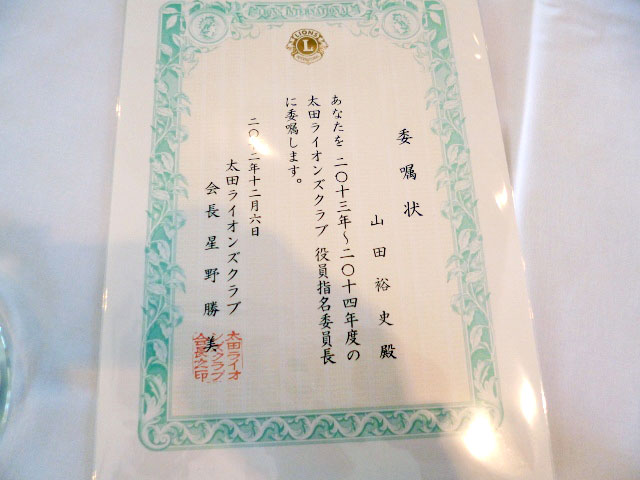 LIONS INTERNATIONAL
LIONS
L
INTERNATIONAL
委嘱状
山田裕史殿
あなたを 二〇十三年～二〇十四年度の
太田ライオンズクラブ 役員指名委員長
に委嘱します。
二〇十二年十二月六日
太田ライオンズクラブ
会長 星野勝美
太田ライオ
ンズクラブ
会長之印